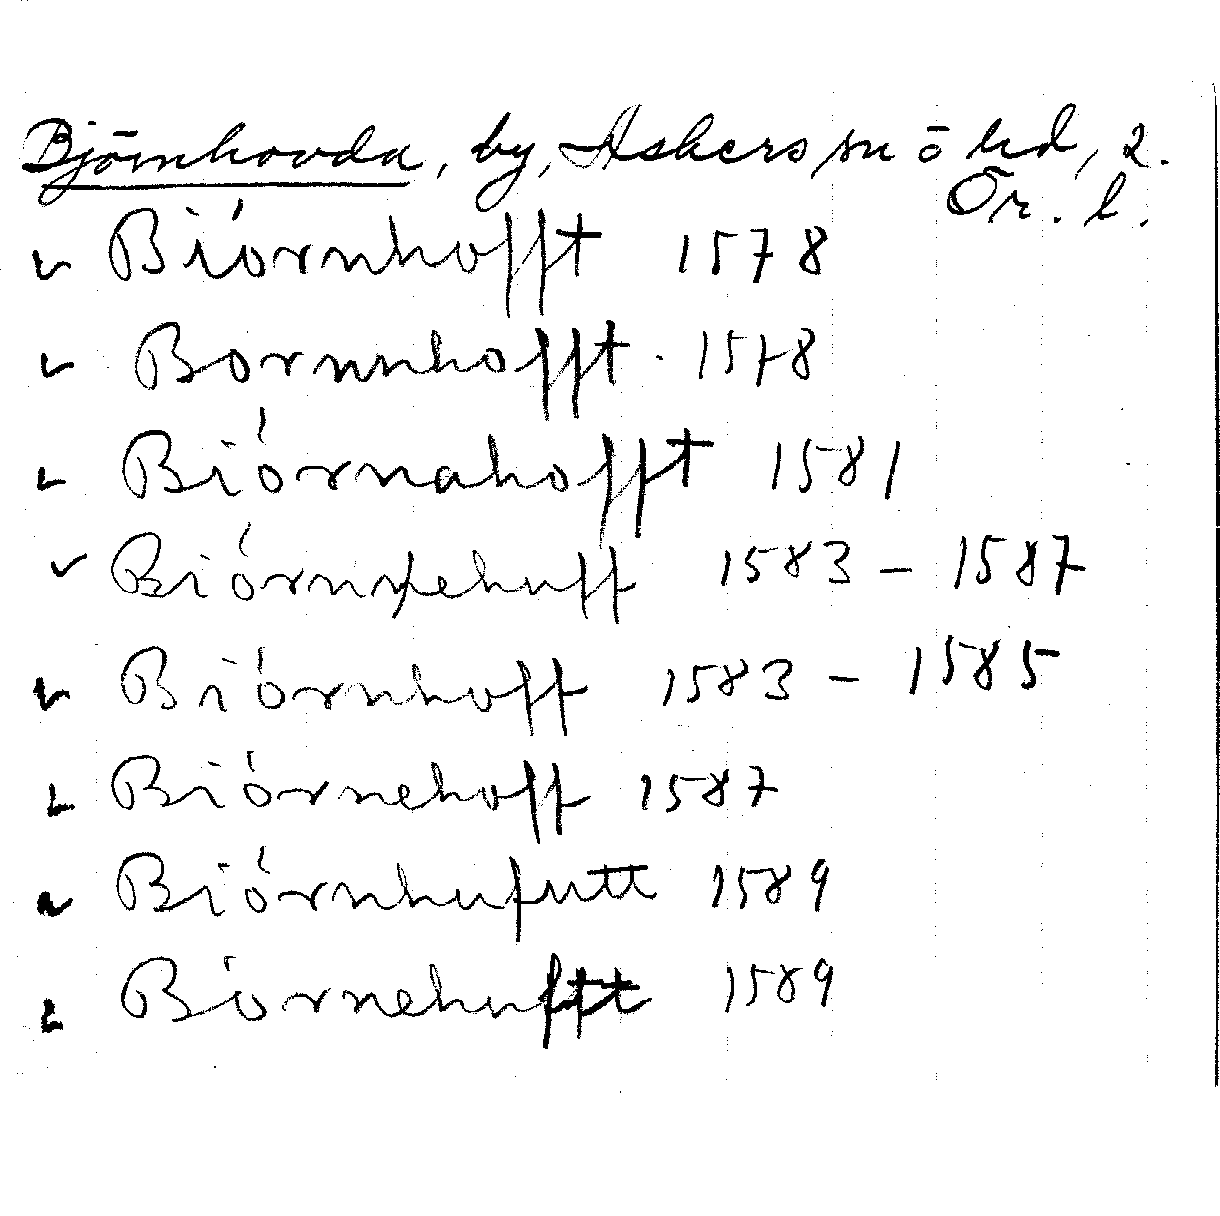 Björnhovda, by, Askers sn ö hd, 2.
Ör. l.
Biórnhofft 1578
Bornnhofft. 1578
Biórnahofft 1581
Biórnnehuff 1583 - 1587
Biórnhoff 1583 - 1585
Biórnehoff 1587
Biórnhufutt 1589
Biornehufftt 1589